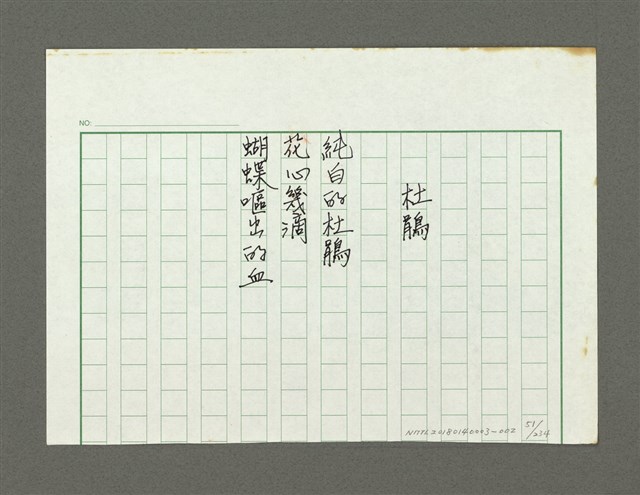 NO:
杜鵑
純白的杜鵑
花心幾滴
蝴蝶嘔出的血
NMTL20180140003-002
51/234